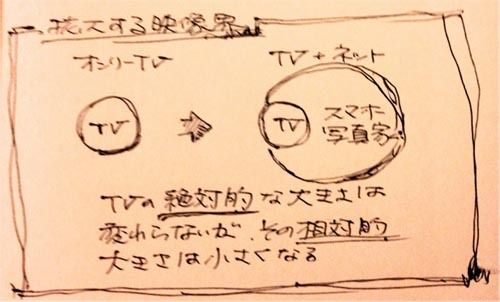 拡大する映像界
オンリーTV
TV+ネット
TV
TV
スマホ
写真家
TVの絶対的な大きさは
変わらないが、その相対的
大きさは小さくなる